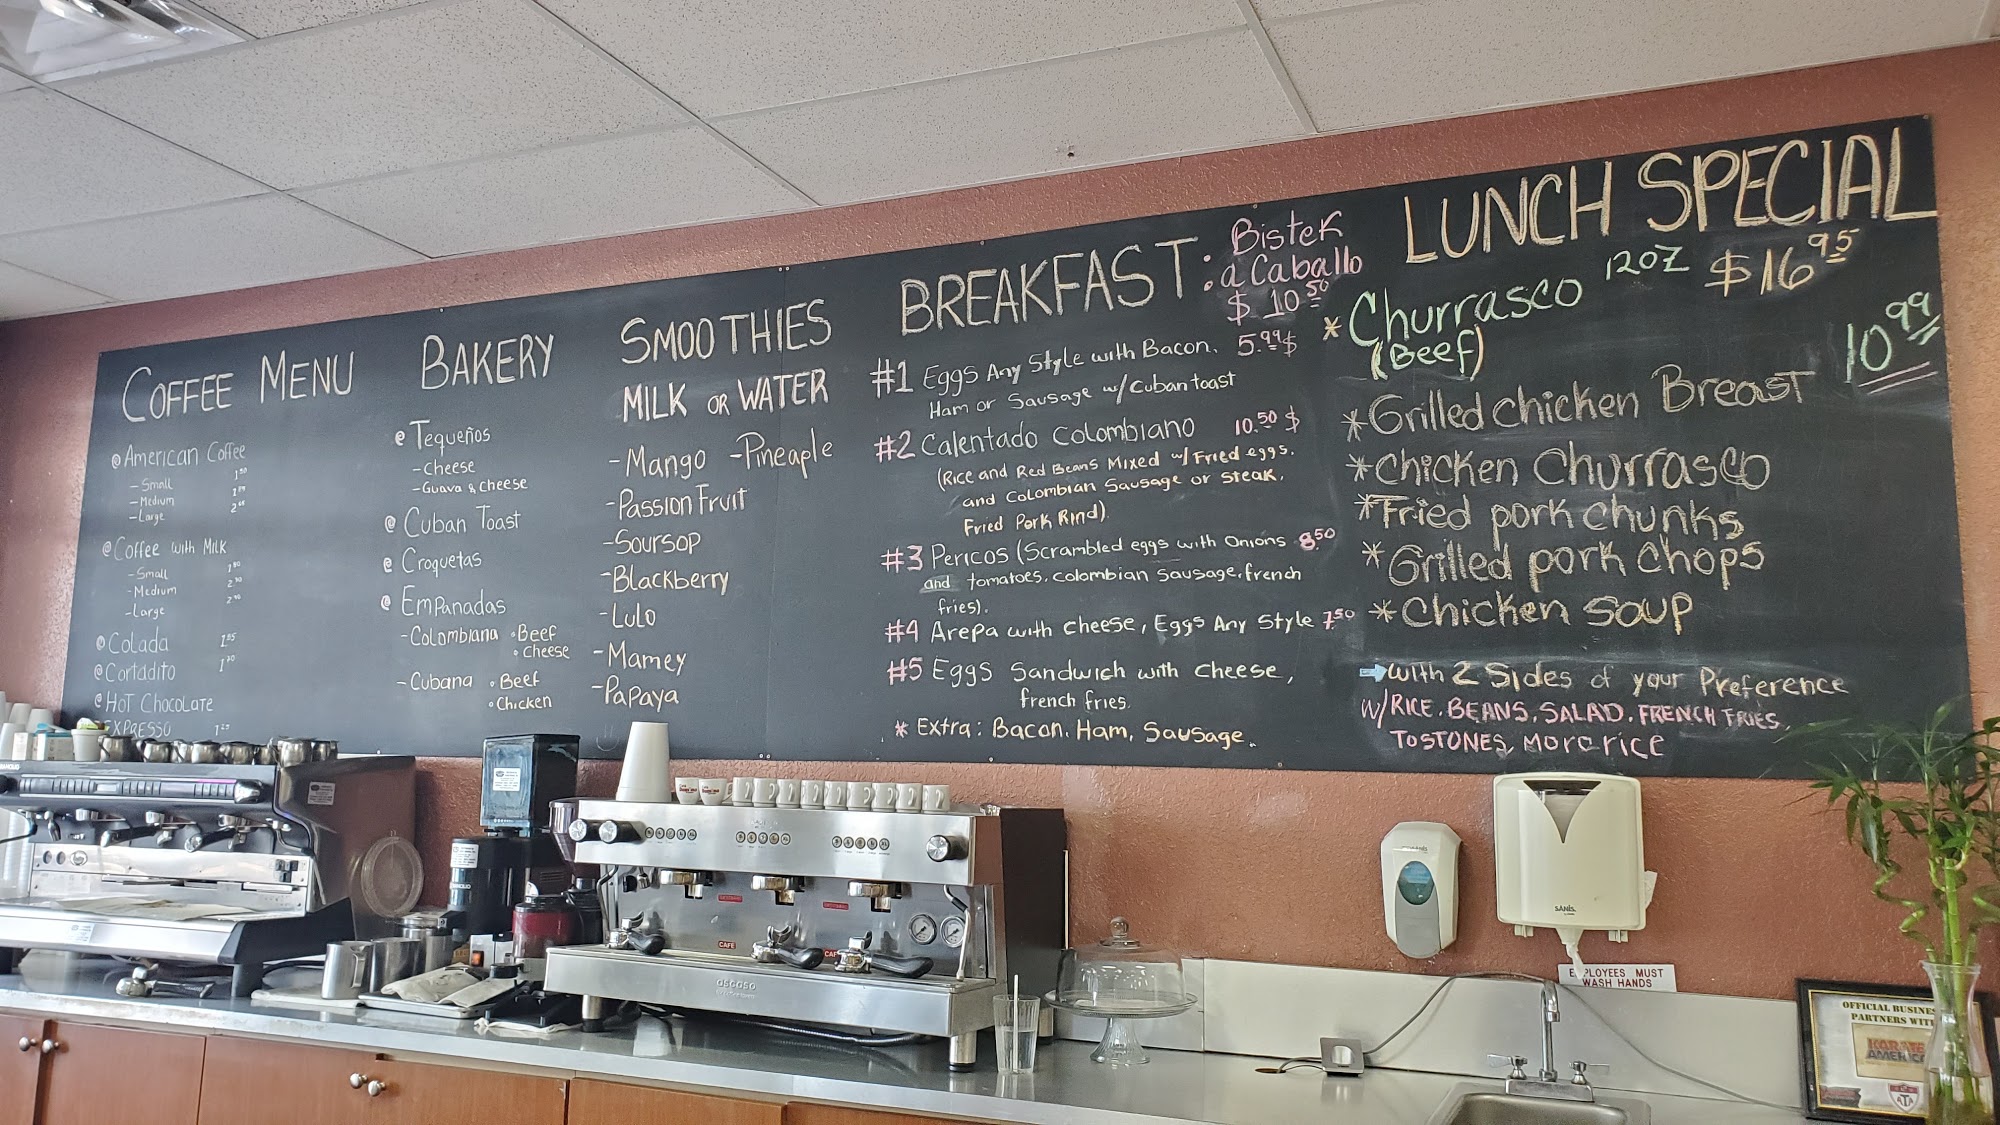 COFFEE MENU
@ American Coffee
- Small
- Medium
- Large
@ Coffee with Milk
- Small
- Medium
- Large
@ Colada
@ Cortadito
@ Hot Chocolate
EXPRESSO
BAKERY
@ Tequeños
- Cheese
- Guava & Cheese
@ Cuban Toast
@ Croquetas
@ Empanadas
- Colombiana • Beef
• Cheese
- Cubana • Beef
• Chicken
SMOOTHIES
MILK OR WATER
- Mango - Pineaple
- Passion Fruit
- Soursop
- Blackberry
- Lulo
- Mamey
- Papaya
BREAKFAST :
Bistek
a Caballo
$ 10.50
#1 Eggs Any Style with Bacon, 5.99$
Ham or Sausage w/Cuban toast
#2 Calentado Colombiano 10.50 $
(Rice and Red Beans Mixed w/ Fried eggs.
and Colombian Sausage or Steak,
Fried Pork Rind).
#3 Pericos (Scrambled eggs with Onions 8.50
and tomatoes, colombian Sausage, french
fries).
#4 Arepa with cheese, Eggs Any Style 7.50
#5 Eggs Sandwich with cheese,
french fries.
* Extra : Bacon, Ham, Sausage.
LUNCH SPECIAL
* Churrasco 12oz $16.95
(Beef)
10.99
* Grilled chicken Breast
* chicken Churrasco
* Fried pork chunks
* Grilled pork chops
* Chicken soup
with 2 Sides of your Preference
W/RICE, BEANS, SALAD, FRENCH FRIES,
TOSTONES, Moro rice
CAFE
ascaso
SANIS.
EMPLOYEES MUST
WASH HANDS
OFFICIAL BUSINE
PARTNERS WIT
AMERIC
ATA